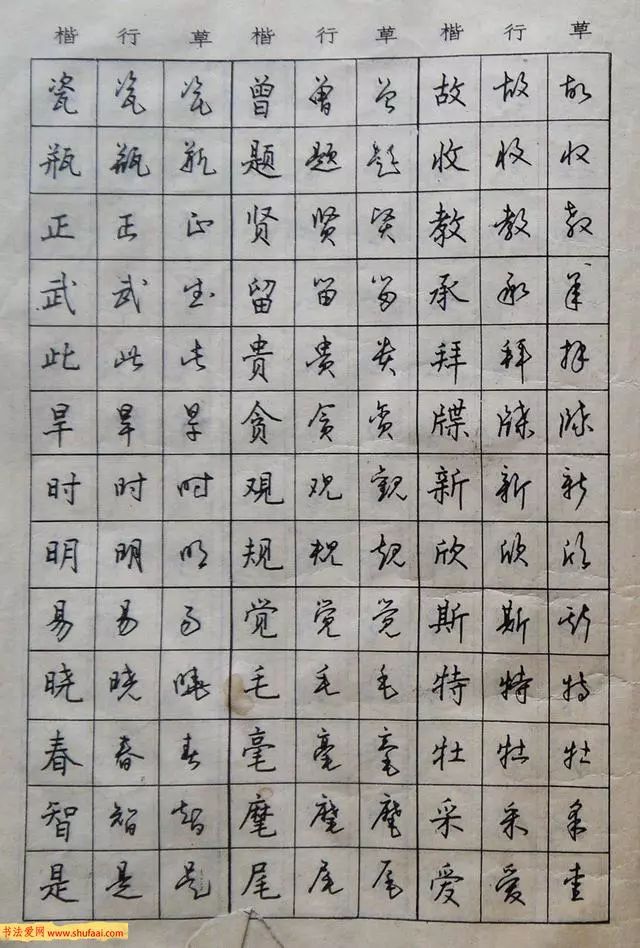 楷 行 草 楷 行 草 楷 行 草
瓷 瓷 瓷 曾 曾 曾 故 故 故
瓶 瓶 瓶 题 题 题 收 收 收
正 正 正 贤 贤 贤 教 教 教
武 武 武 留 留 留 承 承 承
此 此 此 貴 贵 贵 拜 拜 拜
旱 旱 旱 贪 贪 贪 牒 牒 牒
时 时 时 观 观 觀 新 新 新
明 明 明 规 规 规 欣 欣 欣
易 易 易 觉 觉 觉 斯 斯 斯
晓 晓 晓 毛 毛 毛 特 特 特
春 春 春 毫 毫 毫 牡 牡 牡
智 智 智 麾 麾 麾 采 采 采
是 是 是 尾 尾 尾 爱 爱 爱
书法爱网 www.shufaai.com